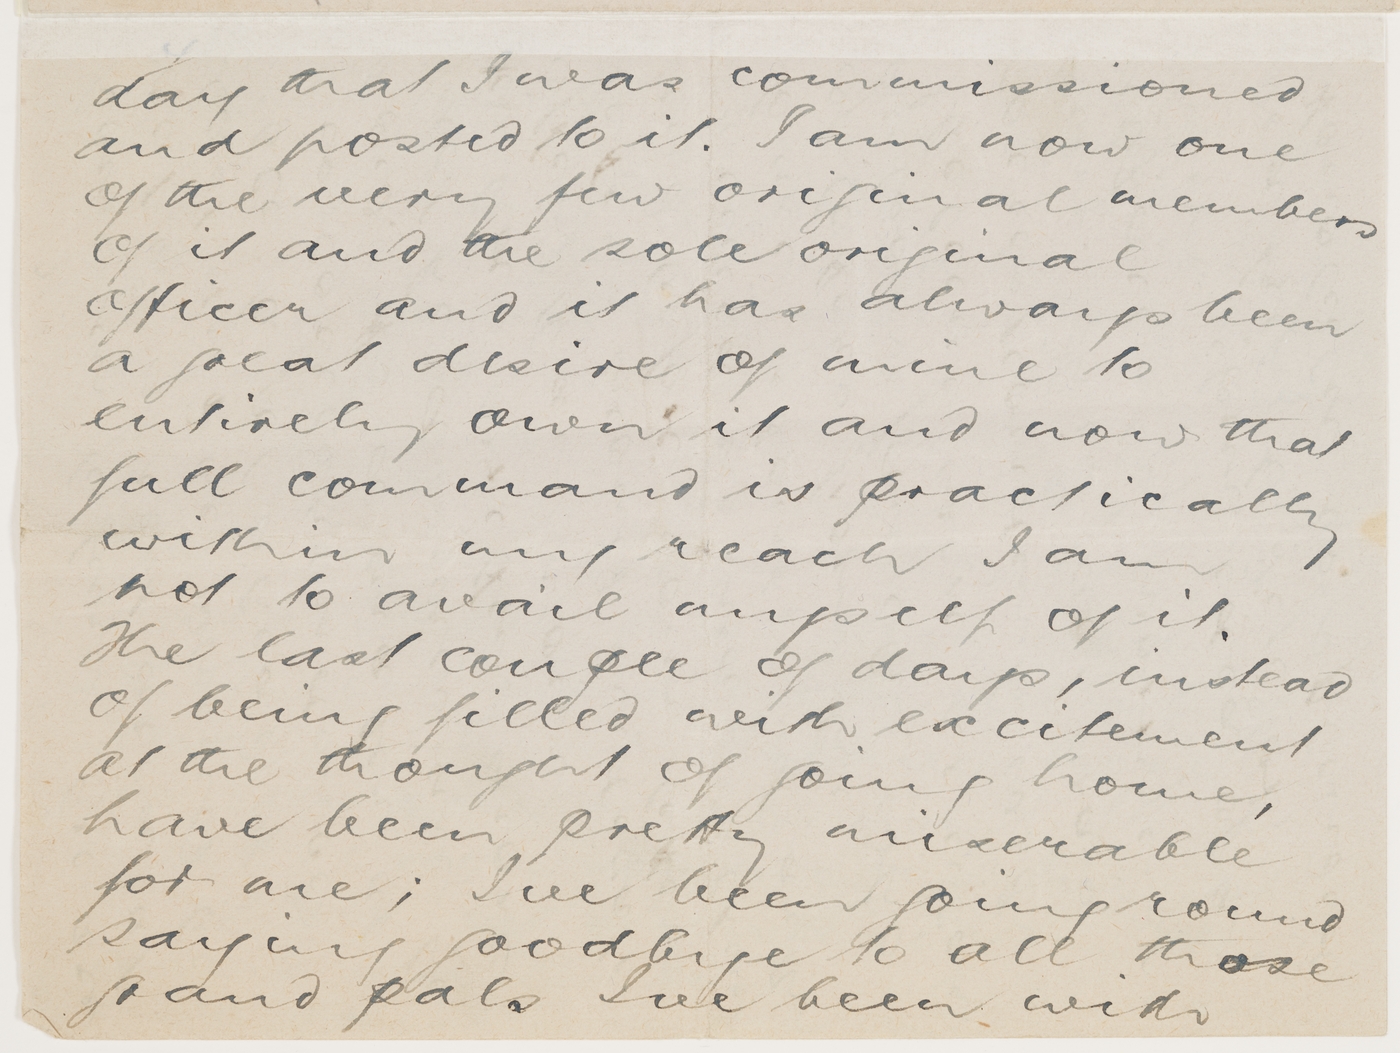 day that I was commissioned
and posted to it. I am now one
of the very few original members
of it and the sole original
officer and it has always been
a great desire of mine to
entirely own it and now that
full command is practically
within my reach I am
not to avail myself of it.
The last couple of days, instead
of being filled with excitement
at the thought of going home,
have been pretty miserable
for me; I've been going round
saying goodbye to all those
grand pals I've been with